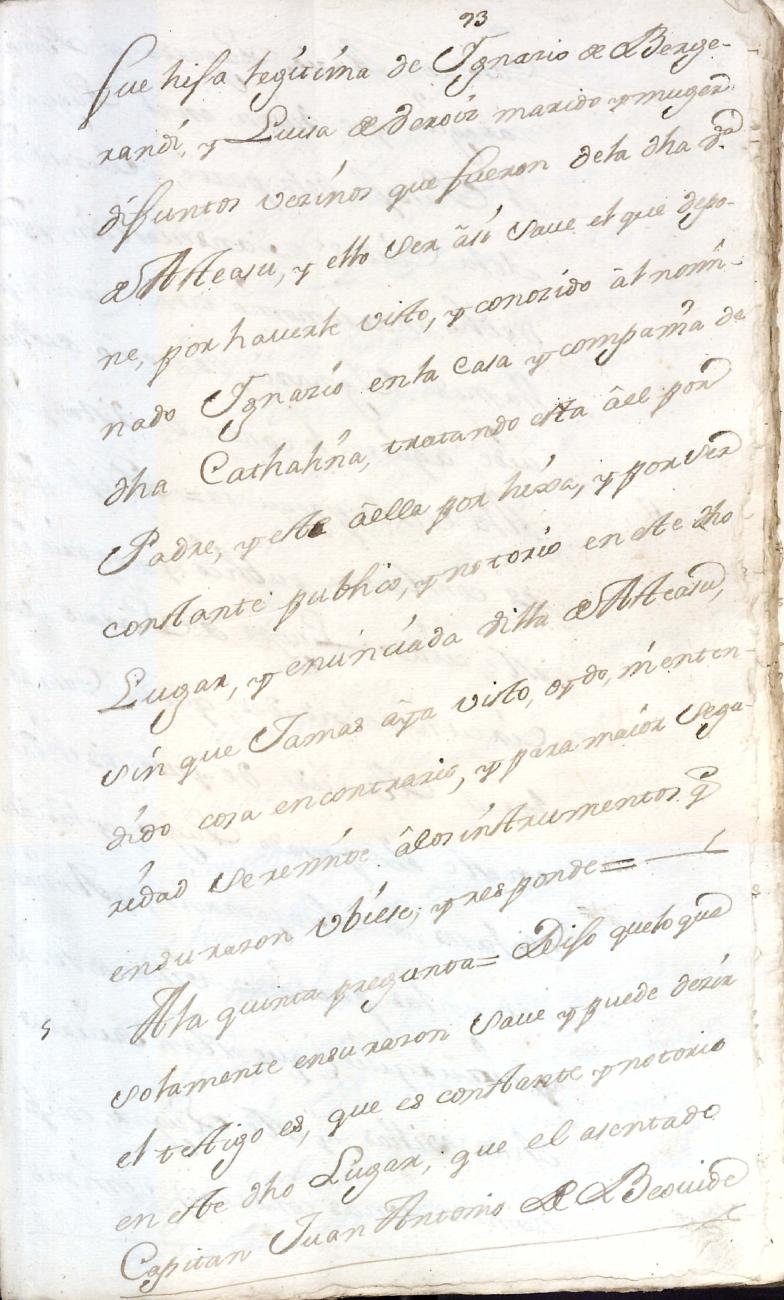 93
fue hisa legitima de Ygnazio de Berge-
randi, y Luisa de
marido y muger
difuntos vezinos que fueron dela dha Va.
de Atteasu, y ello ser âsi save el que depo-
ne, por haverle visto, y conozido âl nomi-
nado Ygnazio en la Casa y compañia de
dha Cathalina, tratando esta âel por
Padre, y este âella por hixa, y por ser
constante publico, y notorio en este dho
Lugar, y enunciada Villa de Atteasu,
sin que Jamas aya visto, oydo, ni enten-
dido cosa en contrario, y para maior segu-
ridad se remite âlos instrumentos q
en su razon Ubiese, y responde=
5
Ala quinta pregunta= Diso que lo que
solamente en su razon save y puede dezir
el testigo es, que es constante y notorio
en este dho Lugar, que el asentado
Capitan Juan Antonio de Beovide